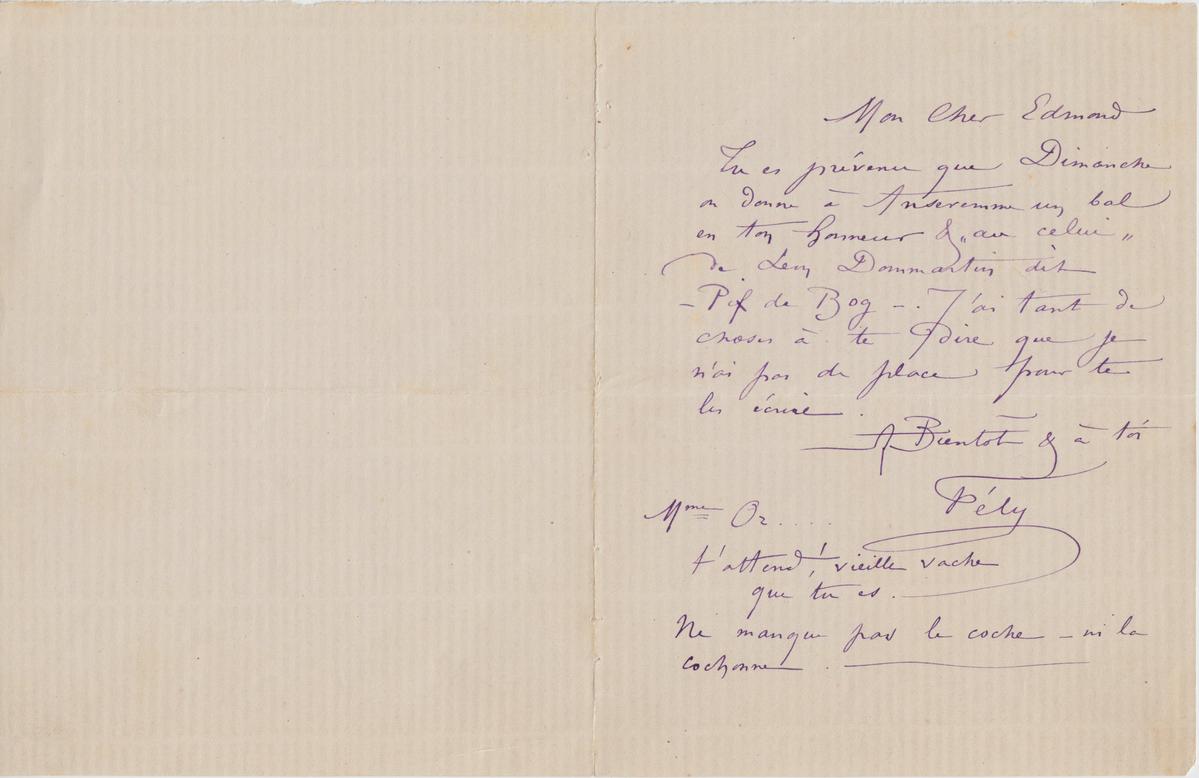 Mon Cher Edmond
Tu es prévenu que Dimanche
on donne à Anseremme un bal
en ton honneur & „au celui„
de Léon Dommartin dit
– Pif de Bog –. J'ai tant de
choses à te dire que je
n'ai pas de place pour te
les écrire.
A Bientôt & à toi
Fély
Mme Oz....
t'attend, vieille vache
que tu es.
Ne manque pas le coche – ni la
cochonne.